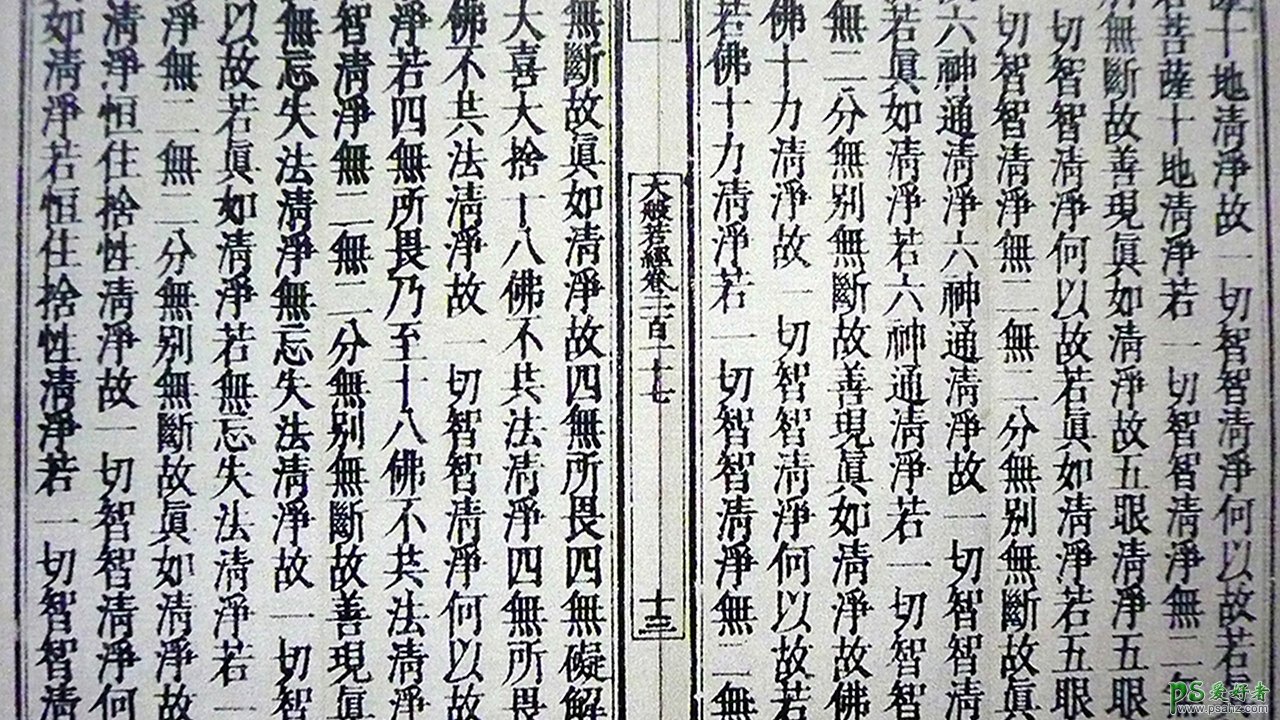 薩十地清淨故一切智智清淨何以故若
若菩薩十地清淨若一切智智清淨無二
無斷故善現眞如清淨故五眼清淨五眼
切智智清淨何以故若眞如清淨若五眼
切智智清淨無二無二分無別無斷故眞
六神通清淨六神通清淨故一切智智清
若眞如清淨若六神通清淨若一切智智
無二分無別無斷故善現眞如清淨故佛
佛十力清淨故一切智智清淨何以故若
若佛十力清淨若一切智智清淨無二無
大般若經卷二百一十七
十三
無斷故眞如清淨故四無所畏四無礙解
大喜大捨十八佛不共法清淨四無所畏
佛不共法清淨故一切智智清淨何以故
淨若四無所畏乃至十八佛不共法清淨
智清淨無二無二分無別無斷故善現眞
無忘失法清淨無忘失法清淨故一切智
以故若眞如清淨若無忘失法清淨若一
淨無二無二分無別無斷故眞如清淨故
清淨恒住捨性清淨故一切智智清淨何
如清淨若恒住捨性清淨若一切智智清
PS爱好者
www.psahz.com